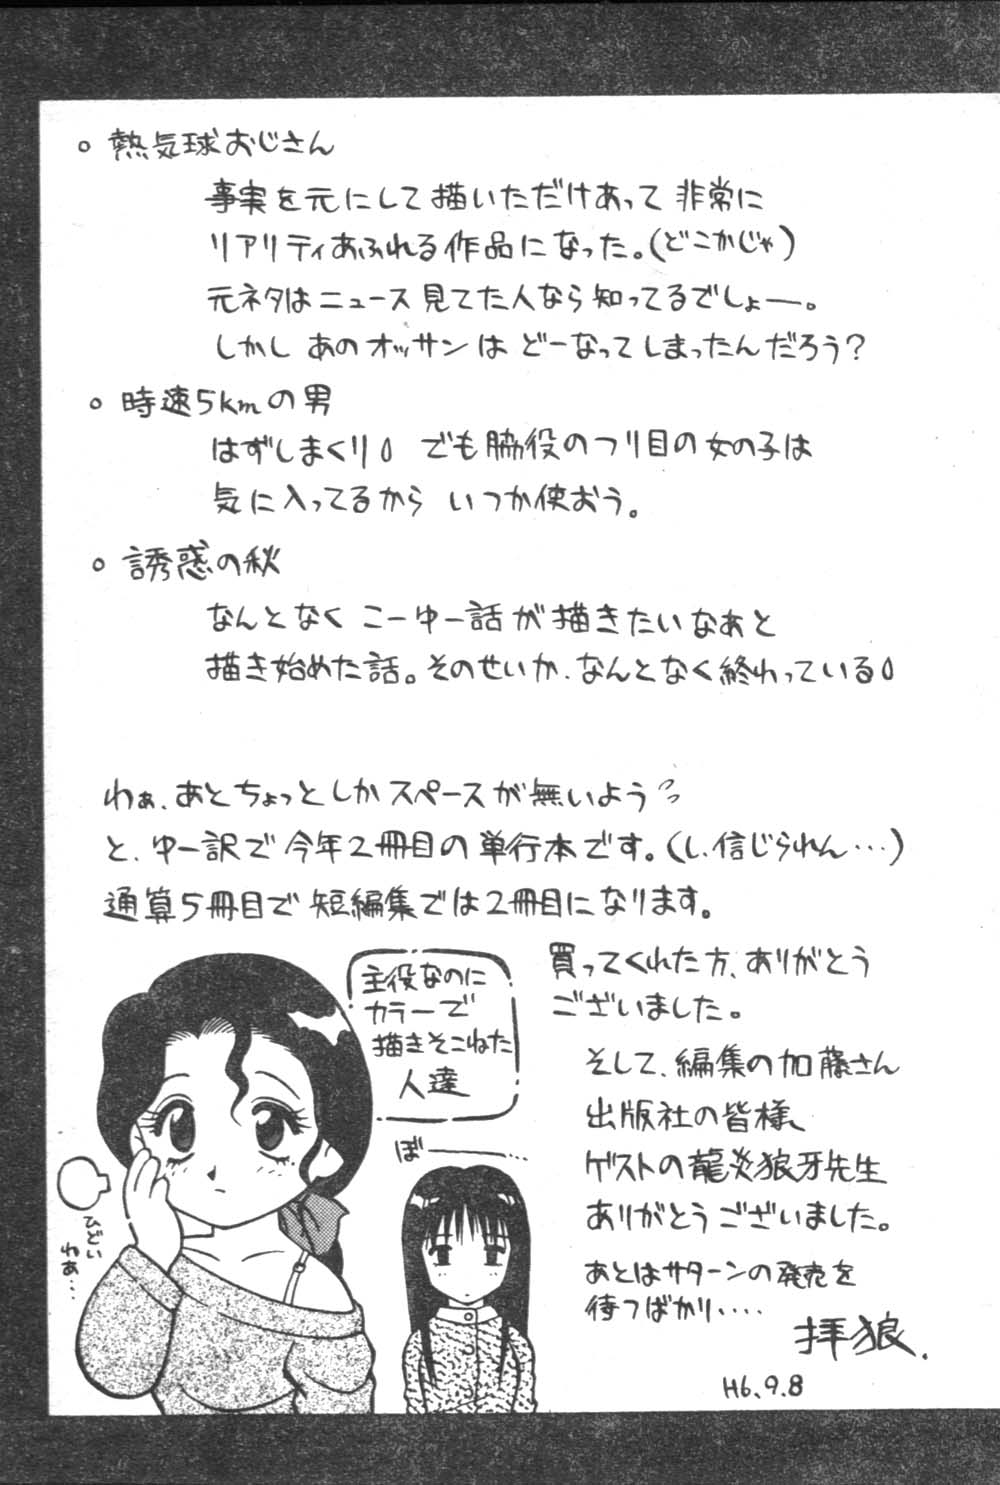 ○ 熱気球おじさん
事実を元にして描いただけあって非常に
リアリティあふれる作品になった。(どこかじゃ)
元ネタはニュース見てた人なら知ってるでしょー。
しかしあのオッサンはどーなってしまったんだろう?
○ 時速5kmの男
はずしまくり でも脇役のつり目の女の子は
気に入ってるから いつか使おう。
○ 誘惑の秋
なんとなく こーゆー話が描きたいなぁと
描き始めた話。そのせいか、なんとなく終わっている
わぁ、あとちょっとしかスペースが無いよう
と、ゆー訳で今年2冊目の単行本です。(し、信じられん…)
通算5冊目で短編集では2冊目になります。
買ってくれた方、ありがとう
ございました。
そして、編集の加藤さん
出版社の皆様、
ゲストの龍炎狼牙先生
ありがとうございました。
あとはサターンの発売を
待つばかり‥‥
拝狼.
H6.9.8
主役なのに
カラーで
描きそこねた
人達
ぼーーー…
ひどい
わぁ…